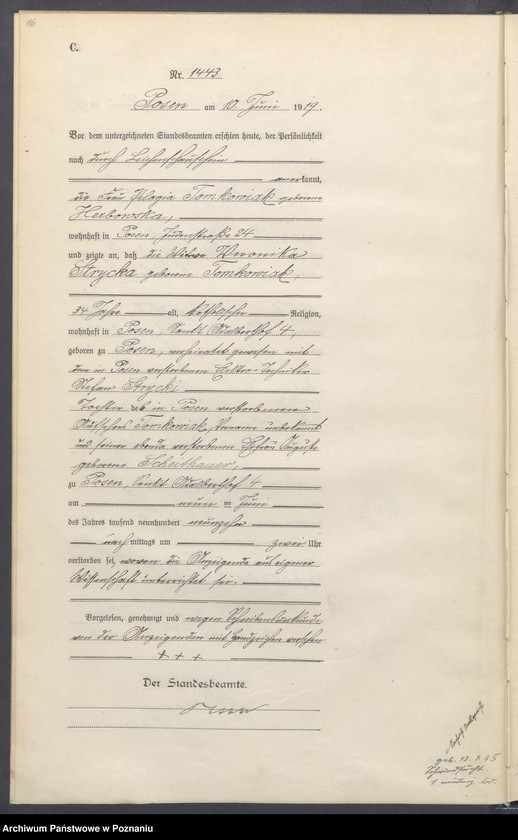 16
C.
Nr. 1443
Posen am 10. Juni 1919.
Vor dem unterzeichneten Standesbeamten erschien heute, der Persönlichkeit
nach durch Leichenschauschein
anerkannt,
die Frau Pelagia Tomkowiak geborene
Herbowska,
wohnhaft in Posen, Judenstraße 24
und zeigte an, daß die Witwe Weronika
Strycka geborene Tomkowiak,
34 Jahre alt, katholischer Religion,
wohnhaft in Posen, Sankt Adalberthof 4,
geboren zu Posen, verheiratet gewesen mit
dem in Posen verstorbenen Elektro-Techniker
Stefan Strycki
Tochter des in Posen verstorbenen
Tomkowiak, Vorname unbekannt
und seiner ebenda verstorbenen Ehefrau Auguste
geborene Scheithauer,
zu Posen, Sankt Adalberthof 4
am neun ten Juni
des Jahres tausend neunhundert neunzehn
nachmittags um zwei Uhr
verstorben sei, wovon die Anzeigende aus eigener
Wissenschaft unterrichtet sei.
Vorgelesen, genehmigt und wegen Schreibensunkunde
von der Anzeigenden mit Handzeichen versehen
+ + +
Der Standesbeamte.
geb. 13. 1. 85
Schwindsucht
Archiwum Państwowe w Poznaniu